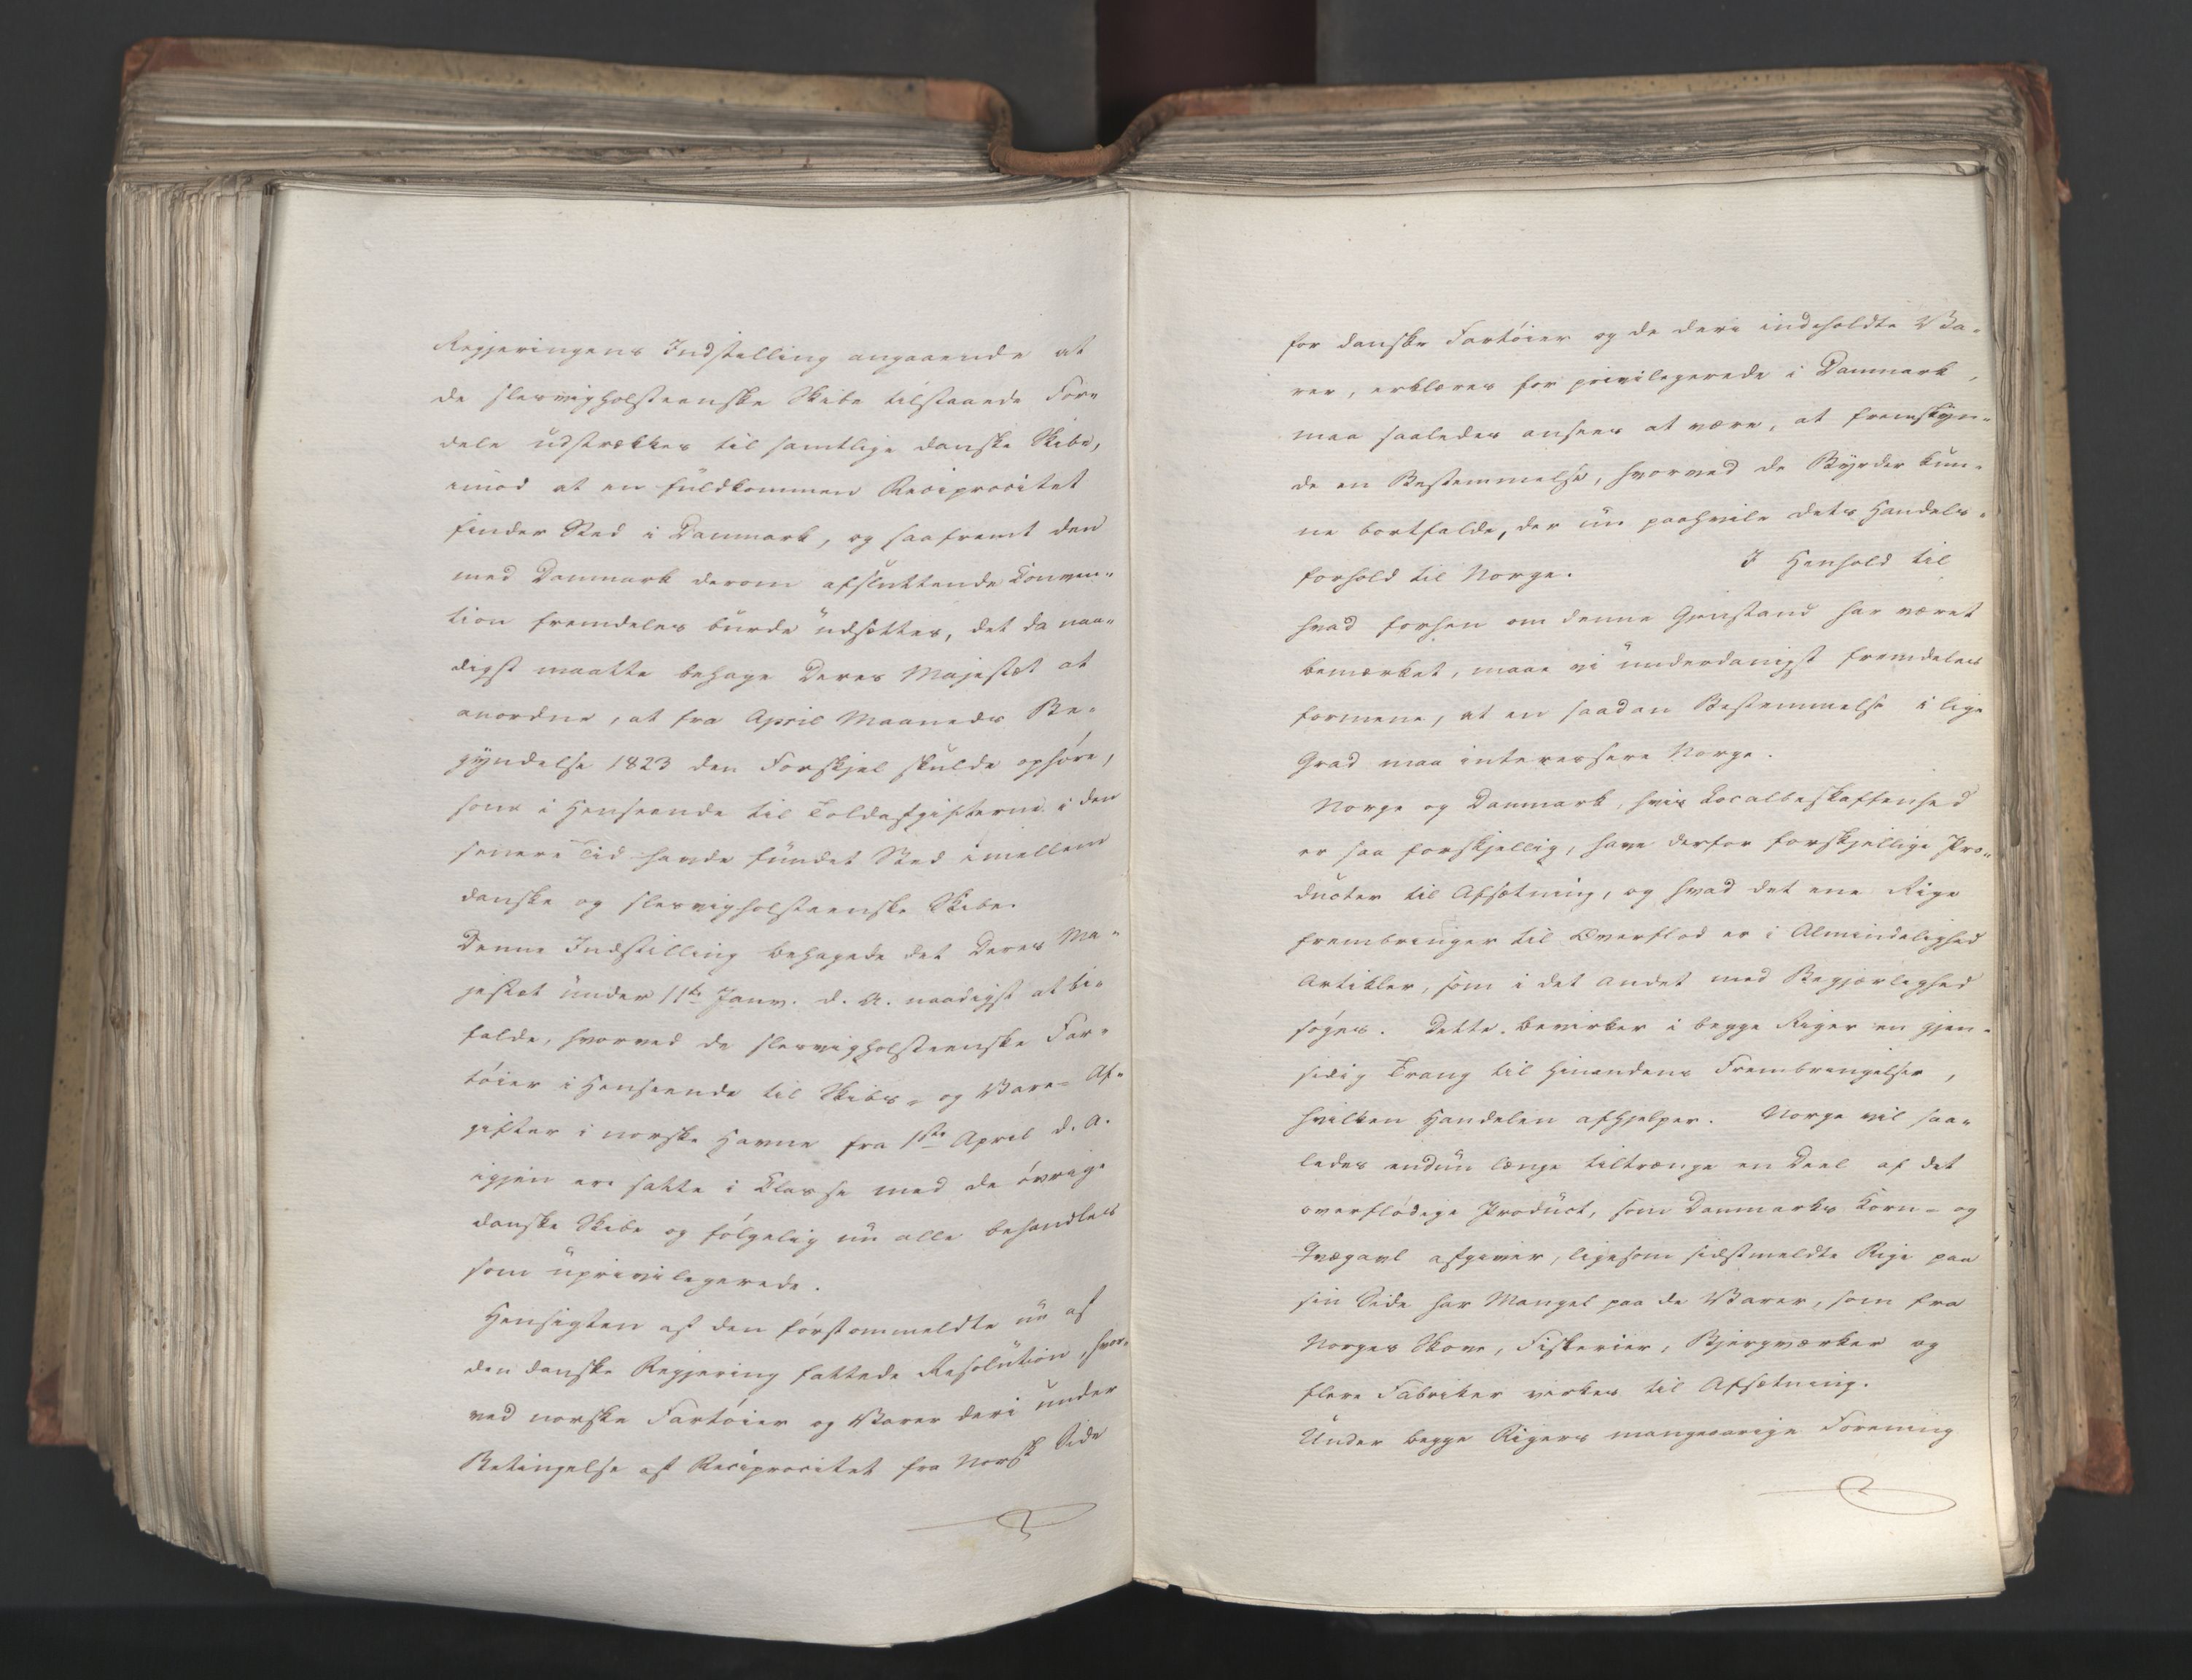 Regjeringens Indstilling angaaende at
de slesvigholsteenske Skibe tilstaaede For-
dele udstrækkes til samtlige danske Skibe,
imod at en fuldkommen Reciprocitet
finder Sted i Danmark, og saafremt den
med Danmark derom afsluttende Conven-
tion fremdeles burde udsættes, det da naa-
digst maatte behage Deres Majestæt at
anordne, at fra April Maaneds Be-
gyndelse 1823 den Forskjel skulde ophøre,
som i Henseende til Toldafgifterne i den
senere Tid havde fundet Sted imellem
danske og slesvigholsteenske Skibe.
Denne Indstilling behagede det Deres Ma-
jestæt under 11te Janv. d. A. naadigst at bi-
falde, hvorved de slesvigholsteenske Far-
tøier i Henseende til Skibs- og Vare-Af-
gifter i norske Havne fra 1ste April d. A.
igjen ere satte i Classe med de øvrige
danske Skibe og følgelig nu alle behandles
som uprivilegerede.
Hensigten af den førstommeldte nu af
den danske Regjering fattede Resolution, hvor-
ved norske Fartøier og Varer deri under
Betingelse af Reciprocitet fra Norsk Side
for danske Fartøier og de deri indeholdte Va-
rer, erklæres for privilegerede i Danmark,
maa saaledes ansees at være, at fremskyn-
de en Bestemmelse, hvorved de Byrder kun-
ne bortfalde, der nu paahvile dets Handels-
forhold til Norge. I Henhold til
hvad forhen om denne Gjenstand har været
bemærket, maae vi underdanigst fremdeles
formene, at en saadan Bestemmelse i lige
Grad maa interessere Norge.
Norge og Danmark, hvis Localbeskaffenhed
er saa forskjellig, have derfor forskjellige Pro-
ducter til Afsætning, og hvad det ene Rige
frembringer til Overflod er i Almindelighed
Artikler, som i det andet med Begjærlighed
søges. Dette bevirker i begge Riger en gjen-
sidig Trang til hinandens Frembringelser,
hvilken Handelen afhjelper. Norge vil saa-
ledes endnu længe tiltrænge en Deel af det
overflødige Product, som Danmarks Korn- og
Qvægavl afgiver, ligesom sidstmeldte Rige paa
sin Side har Mangel paa de Varer, som fra
Norges Skove, Fiskerier, Bjergværker og
flere Fabriker virkes til Afsætning.
Under begge Rigers mangeaarige Forening